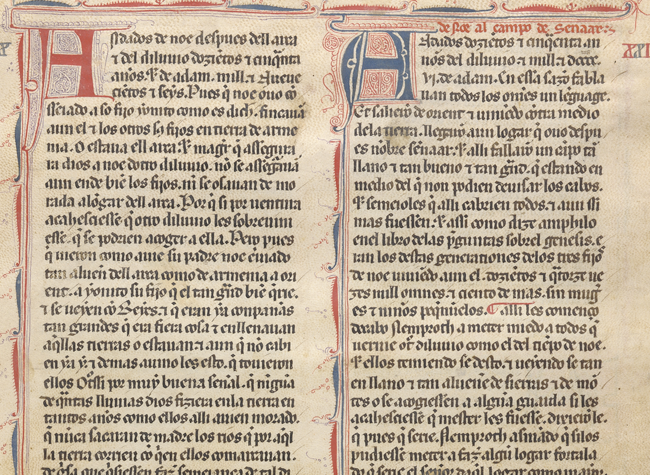 Andados de noe despues dell arca
⁊ del diluuio dozientos ⁊ cinq̃nta
años. ⁊ de adam. mill ⁊ nueue
cientos ⁊ seys. Pues q̃ noe ouo cõ
sseiado a so fijo yonito como es dicho. fincaua
aun el ⁊ los otros sos fijos en tierra de arme
nia. O estaua ell arca. ⁊ magr̃ q̃ assegura
ra dios a noe dotro diluuio. nõ se assegaua
aun ende biẽ los fijos. nĩ se osauan de mo
rada alõgar dell arca. Por q̃ si por uentura
acahesciesse q̃ otro diluuio les sobreuini
esse. q̃ se podrien acoger a ella. Pero pues
q̃ uieron como aue su padre noe enuiado
tan aluen dell arca como de armenia a ori
ent. a yonito su fijo q̃ el tan grãd biẽ q̃rie.
⁊ se ueyen cõ ⁊ q̃ eran ya conpañas
tan grandes q̃ era fiera cosa ⁊ enllenauan
aq̃llas tierras o estauan ⁊ aun q̃ nõ cabi
en ya y. ⁊ demas auino les esto. q̃ touieron
ellos por muy buena señal. q̃ nĩgũa
de q̃ntas lluuias dios fiziera en la tierra en
tantos años como ellos alli auien morado.
q̃ nũca sacaran de madre los rios q̃ por aq̃l
la tierra corrien cõ q̃ en ellos comarauan.
de cosa que ssen faz semeiança de tal di
de noe al campo de Senaar.
XXII
Andados dozietos ⁊ cinq̃enta an
nos del diluuio ⁊ mill ⁊ dccc.
vj. de adam. En essa sazõ fabla
uan todos los om̃es un lenguage.
Et salierõ de orient ⁊ uiniero cõtra medio
de la tierra. ⁊ llegarõ aun logar q̃ ouo despu
es nõbre senaar. ⁊ alli fallarõ un cãpo tã
llano ⁊ tan bueno ⁊ tan grãd. q̃ estando en
medio del q̃ non podien deuisar los cabos.
⁊ semeioles q̃ alli cabrien todos. ⁊ aun si
mas fuessen. ⁊ assi como dize amphilo
en el libro de las p̃guntas sobrel genesis. e
ran los destas generationes de los tres fijos
de noe uiniedo aun el. dozietos ⁊ q̃torze ue
zes mill omnes. ⁊ ciento de mas. sin mug̃
es ⁊ ninnos peq̃nnuelos. ¶ alli les començo
de cabo Nemproth a meter miedo a todos q̃
uernie otr̃ diluuio como el del tiẽpo de noe.
⁊ ellos temiendo se desto. ⁊ ueyendo se tan
en llano ⁊ tan aluene de sierras ⁊ de mõ
tes o se acogiessen a algũa guarida si les
acahesciesse q̃ mester les fuesse. dixierõ le.
q̃ pues q̃ serie. Nemproth asmado q̃ si los
pudiesse meter a faz̃ algũ logar fortala
do q̃ serie el señor daq̃l logar